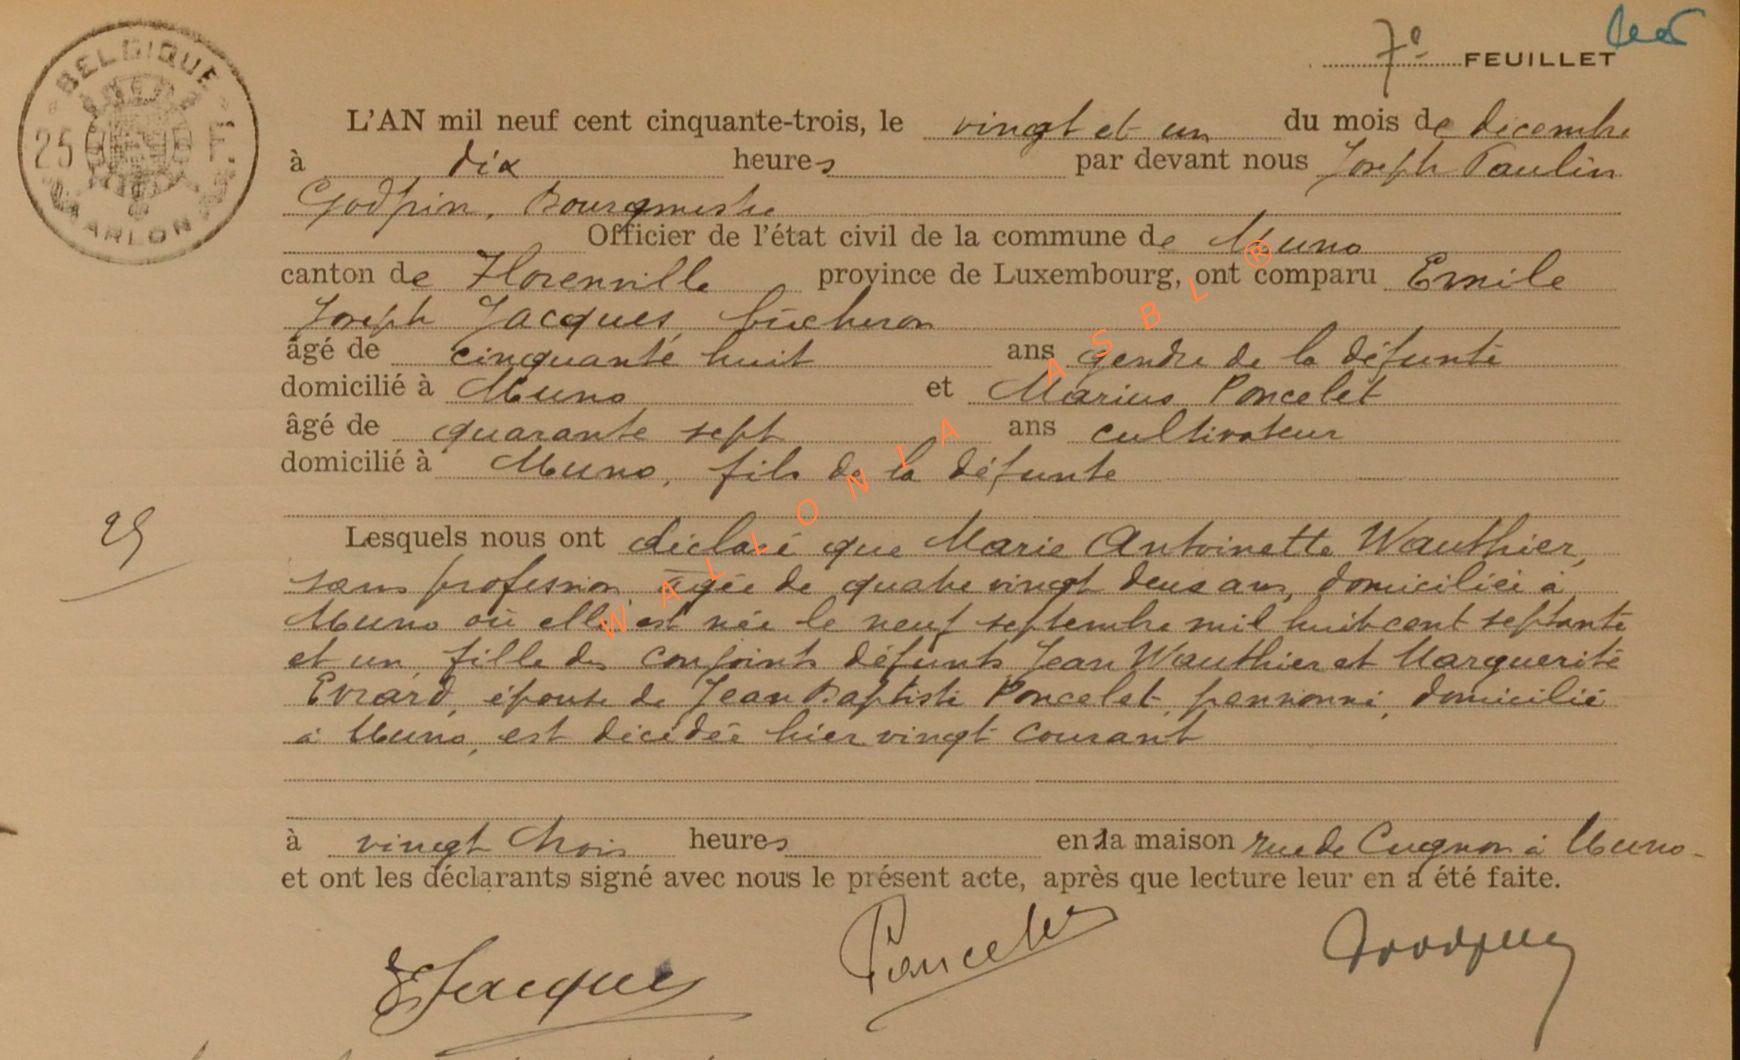 BELGIQUE
25 F.
ARLON
7e FEUILLET
L'AN mil neuf cent cinquante-trois, le vingt et un du mois de décembre
à dix heures par devant nous Joseph Paulin
Godfrin, Bourgmestre
Officier de l'état civil de la commune de Muno
canton de Florenville province de Luxembourg, ont comparu Emile
Joseph Jacques, bûcheron
âgé de cinquante huit ans gendre de la défunte
domicilié à Muno et Marius Poncelet
âgé de quarante sept ans cultivateur
domicilié à Muno, fils de la défunte
25
Lesquels nous ont déclaré que Marie Antoinette Wauthier,
sans profession, âgée de quatre vingt deux ans, domiciliée à
Muno où elle est née le neuf septembre mil huit cent septante
et un, fille des conjoints défunts Jean Wauthier et Marguerite
Evrard, épouse de Jean Baptiste Poncelet, pensionné, domicilié
à Muno, est décédée hier vingt courant
à vingt trois heures en la maison rue de Cugnon à Muno.
et ont les déclarants signé avec nous le présent acte, après que lecture leur en a été faite.
EJacques Poncelet
WALLONIA ASBL ®